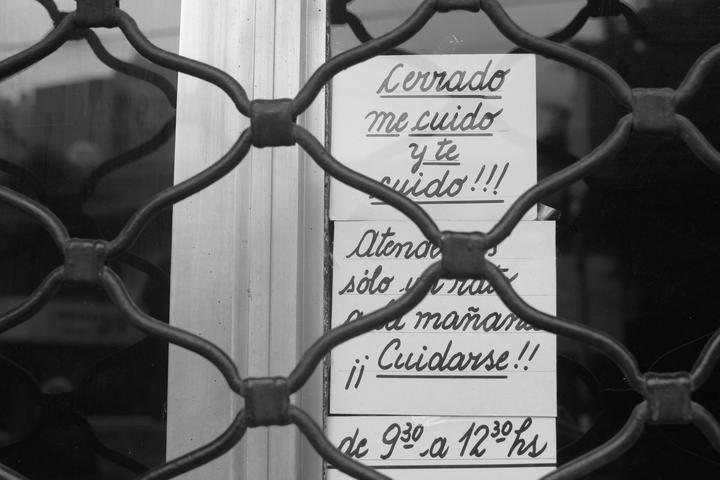 Cerrado
me cuido
y te
cuido!!!
Atendemos
sólo un rato
a la mañana
¡¡ Cuidarse!!
de 9³⁰ a 12³⁰ hs